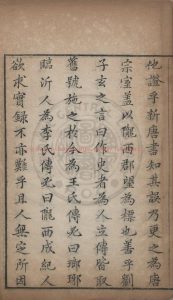 他證乎新唐書知其誤乃更之為唐
宗室蓋以隴西郡望為標也善乎劉
子玄之言曰作史者為人立傳皆取
舊號施之於今為王氏傳必曰瑯琊
臨沂人為李氏傳必曰隴西成紀人
欲求實錄不亦難乎且人無定所因